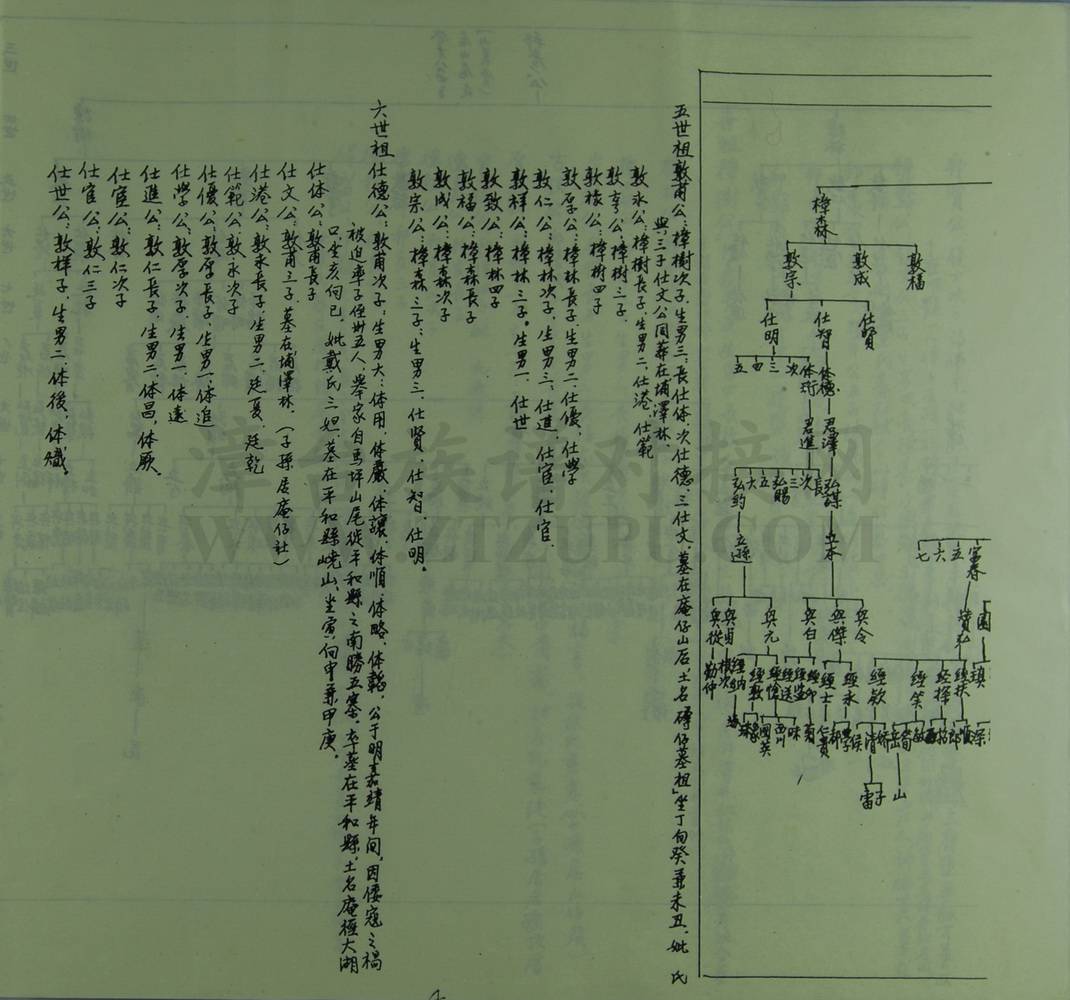 樟森
敦福
敦成
敦宗
仕賢
仕智
仕明
体德
体珩
次
三
四
五
君澤
君進
弘謀
長
次
三
弘賜
五
六
弘約
立本
立遜
富春
五
六
七
贊弘
國
與令
與傑
與白
與元
與貞
與從
經扶
經擇
經笑
經欽
經永
經士
經印
經送
經敦
經納
勤仲
雷子
山
五世祖敦甫公:樟樹次子.生男三,長仕体.次仕德.三仕文.墓在庵仔山后.土名磚仔墓祖,坐丁向癸兼未丑.妣 氏
與三子仕文公同葬在埔澤林.
敦永公:樟樹長子.生男二.仕港.仕範
敦亨公:樟樹三子.
敦祿公:樟樹四子
敦厚公:樟林長子.生男二.仕優.仕學
敦仁公:樟林次子.生男三.仕進.仕宦.仕官.
敦祥公:樟林三子.生男一.仕世
敦致公:樟林四子
敦福公:樟森長子
敦成公:樟森次子
敦宗公:樟森三子:生男三.仕賢.仕智.仕明.
六世祖仕德公:敦甫次子:生男六:体用.体嚴.体讓.体順.体略.体韜.公于明嘉靖年间,因倭寇之禍
被迫率子侄卅五人.舉家自馬坪山尾徙平和縣之南勝五寨.卒墓在平和縣土名庵極大湖
口.坐亥向巳.妣戴氏三妲.墓在平和縣山.坐寅向申兼甲庚.
仕体公:敦甫長子
仕文公:敦甫三子.墓在埔澤林.(子孫居庵仔社)
仕港公:敦永長子.生男二.廷夏.廷乾
仕範公:敦永次子
仕優公:敦厚長子.生男一.体進
仕學公:敦厚次子.生男一.体遠
仕進公:敦仁長子.生男二.体昌.体厥.
仕宦公:敦仁次子
仕官公:敦仁三子
仕世公:敦祥子.生男二.体後.体熾.
漳台族谱对接网
WWW.ZTZUPU.COM